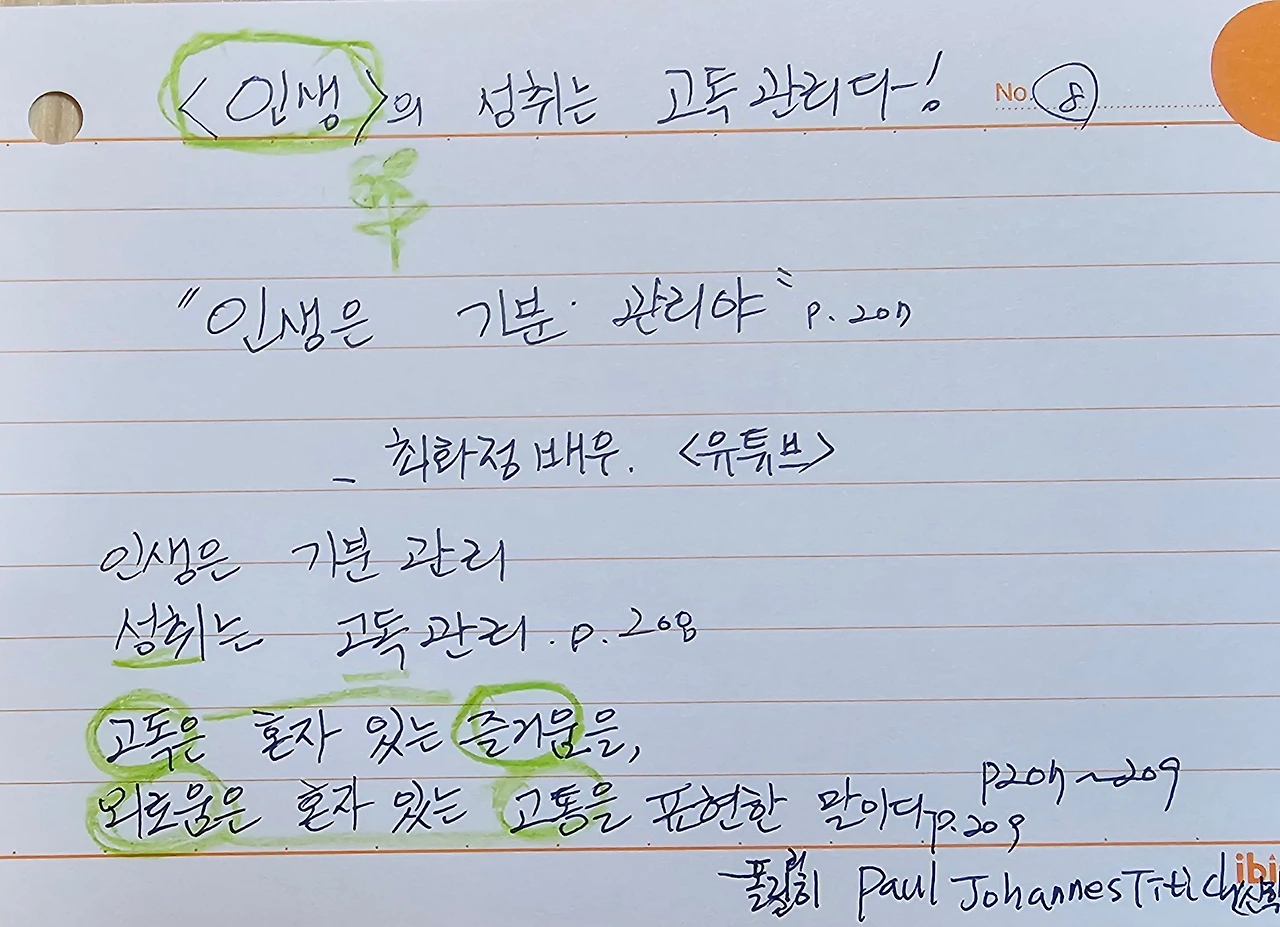 <인생>의 성취는 고독관리다! No. 8
"인생은 기분 관리야" p. 207
_ 최화정 배우. <유튜브>
인생은 기분 관리
성취는 고독 관리. p. 208
고독은 혼자 있는 즐거움을,
외로움은 혼자 있는 고통을 표현한 말이다 p.209
p207~209
Paul Johannes